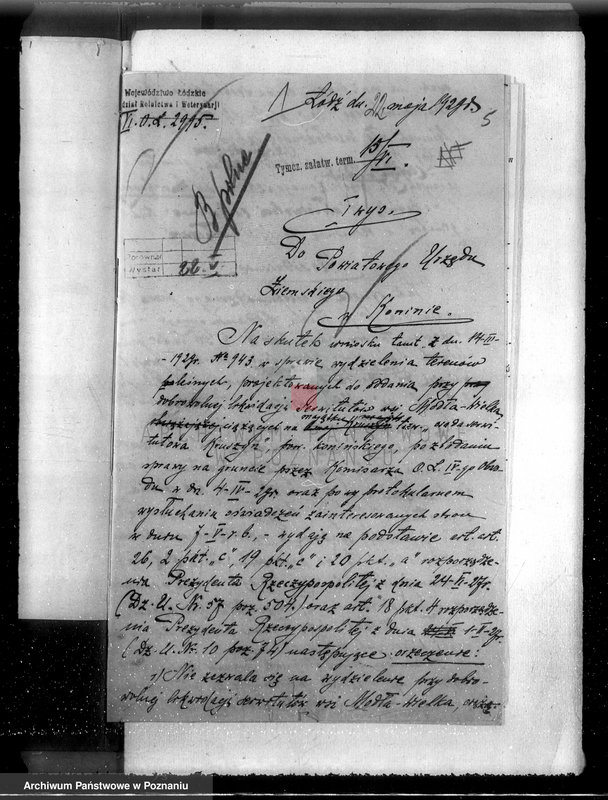 Województwo Łódzkie
dział Rolnictwa i Weterynarji
VI.O.L. 2915.
1) Łódź dn. 22 maja 1929 r.
5
Tymcz. załatw. term. 15/VI.
B. pilne
Porównał
Wysłał 22. V
Do Powiatowego Urzędu
Ziemskiego
w Koninie.
Na skutek wniosku tamt. z dn. 14-III-
-1929r. № 943 w sprawie wydzielenia terenów
leśnych, projektowanych do oddania przy
dobrowolnej likwidacji serwitutów wsi Modła-Wielka
ciążących na majątku
Kruszyn", pow. konińskiego, po zbadaniu
sprawy na gruncie przez Komisarza O.L. IV-go Obwo-
du w dn. 4-IV-29r. oraz po protokularnem
wysłuchaniu oświadczeń zainteresowanych stron
w dniu 7-V-r.b., - wydaję na podstawie art. art.
26, 2 pkt. „c", 19 pkt. „c" i 20 pkt. „a" rozporządze-
nia Prezydenta Rzeczypospolitej z dnia 24-VI-27r.
(Dz. U. Nr. 57 poz. 504) oraz art. 18 pkt. 4 rozporządze-
nia Prezydenta Rzeczypospolitej z dnia 1-V-29r.
(Dz. U. Nr. 10 poz. 74) następujące orzeczenie:
1) Nie zezwala się na wydzielenie przy dobro-
wolnej likwidacji serwitutów wsi Modła-Wielka,
Archiwum Państwowe w Poznaniu